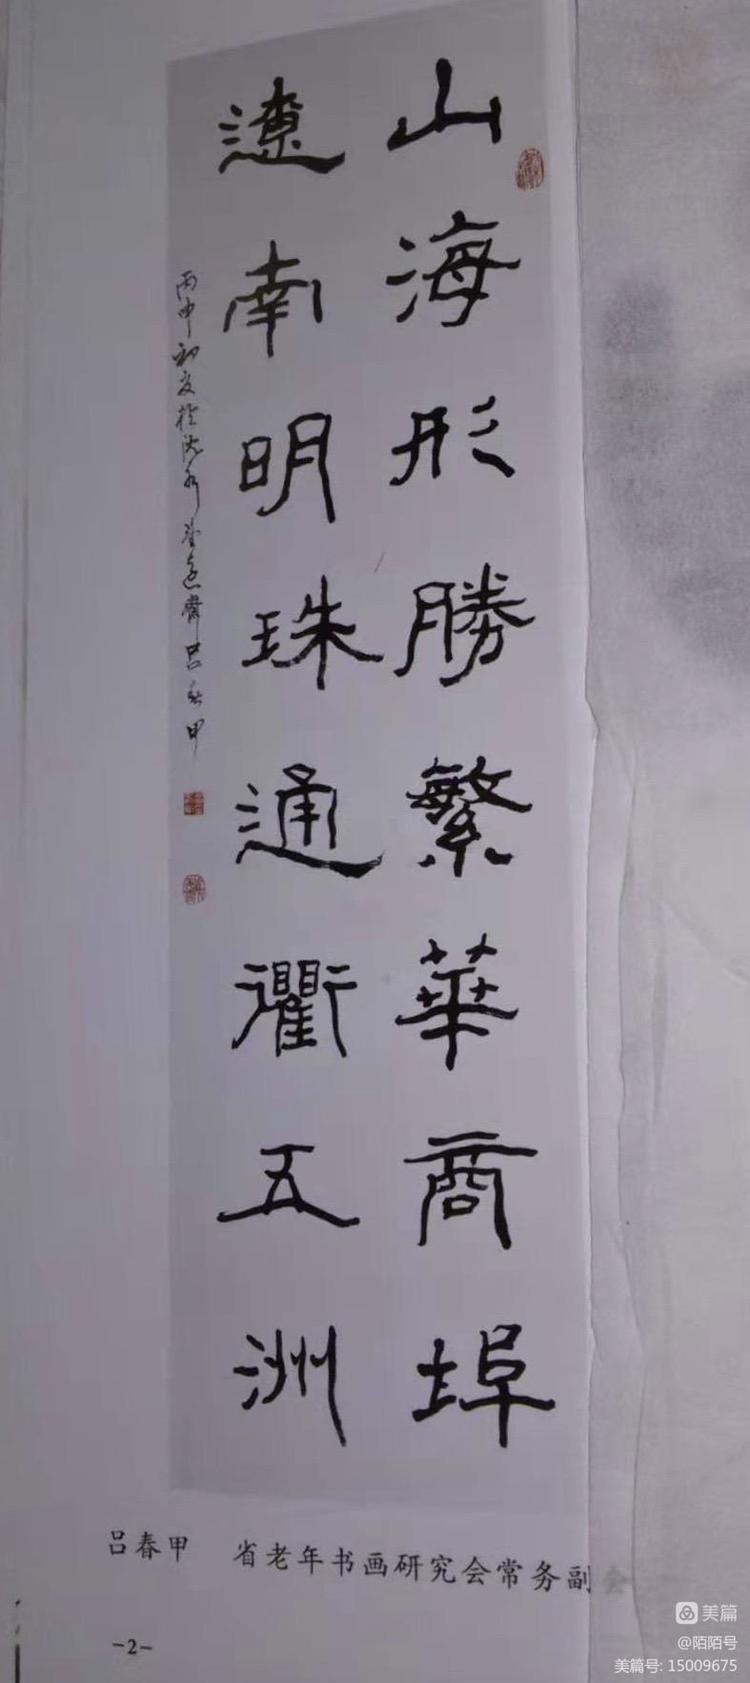 山海形勝繁華商埠
遼南明珠通衢五洲
丙申初夏於沈水
呂春甲
吕春甲 省老年书画研究会常务副会
-2-
美篇
@陌陌号
美篇号: 15009675